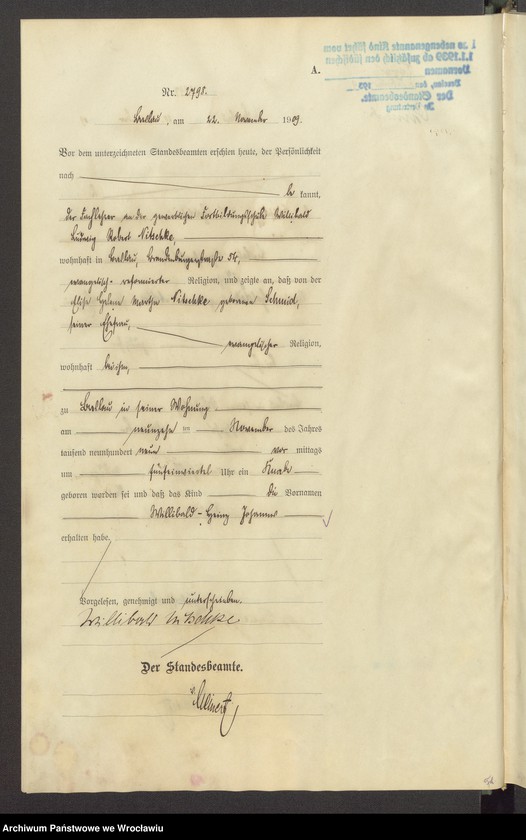 A.
Nr. 2798.
Breslau, am 22. November 1909.
Vor dem unterzeichneten Standesbeamten erschien heute, der Persönlichkeit
nach
be kannt,
der Fachlehrer an der gewerblichen Fortbildungsschule Willibald
Ludwig Robert Nitschke,
wohnhaft in Breslau, Brandenburgerstraße 54,
evangelisch-reformierter Religion, und zeigte an, daß von der
Elise Helene Martha Nitschke geborenen Schmid,
seiner Ehefrau,
evangelischer Religion,
wohnhaft bei ihm,
zu Breslau in seiner Wohnung
am neunzehn ten November des Jahres
tausend neunhundert neun vor mittags
um fünfeinviertel Uhr ein Knabe
geboren worden sei und daß das Kind die Vornamen
Willibald-Heinz Johannes
erhalten habe.
Vorgelesen, genehmigt und unterschrieben.
Willibald Nitschke
Der Standesbeamte.
Archiwum Państwowe we Wrocławiu